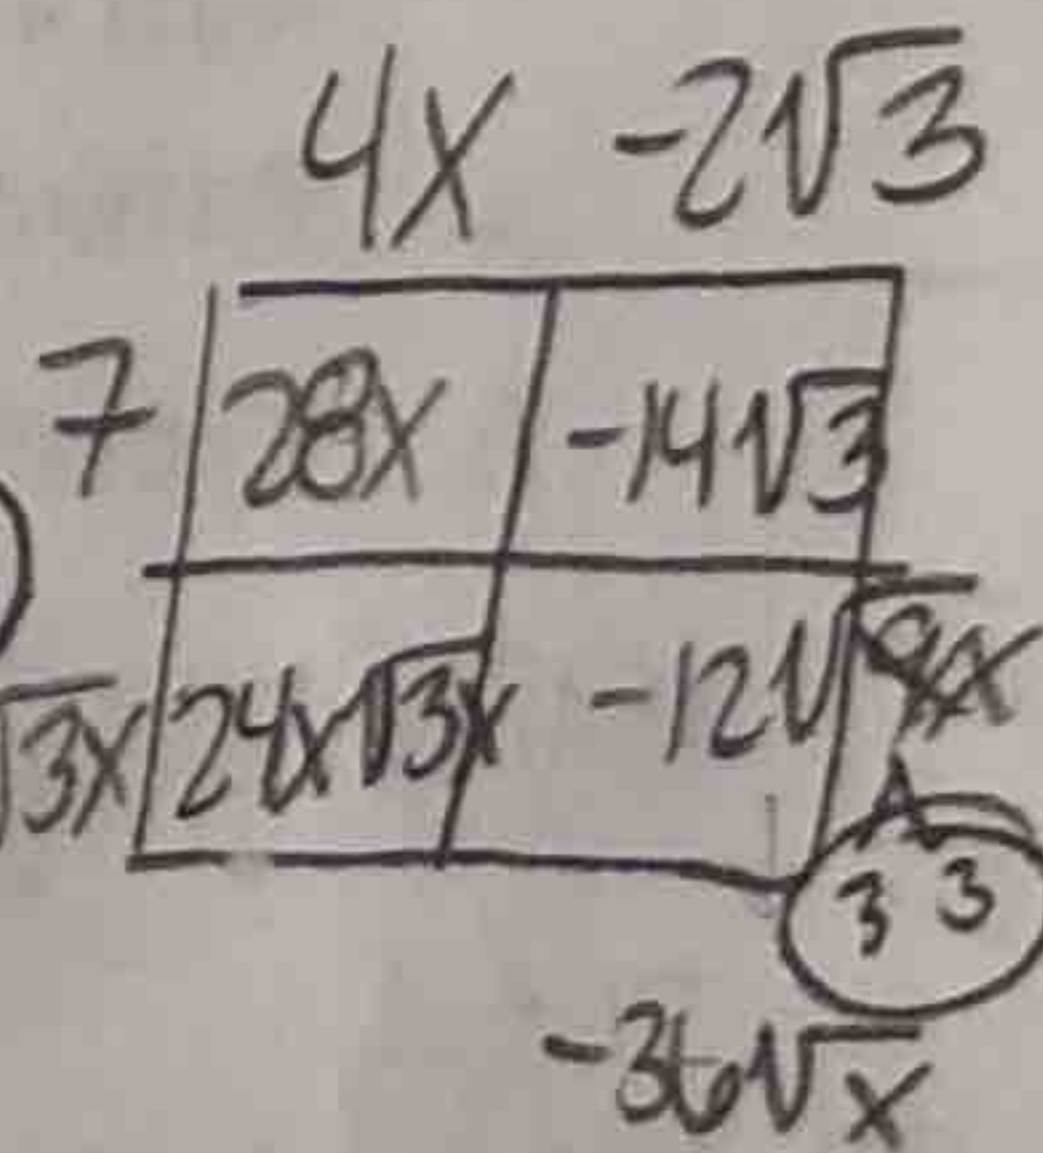 4x -2√3
7 28x -14√3
√3x 24x√3x -12√9x
3 3
-36√x